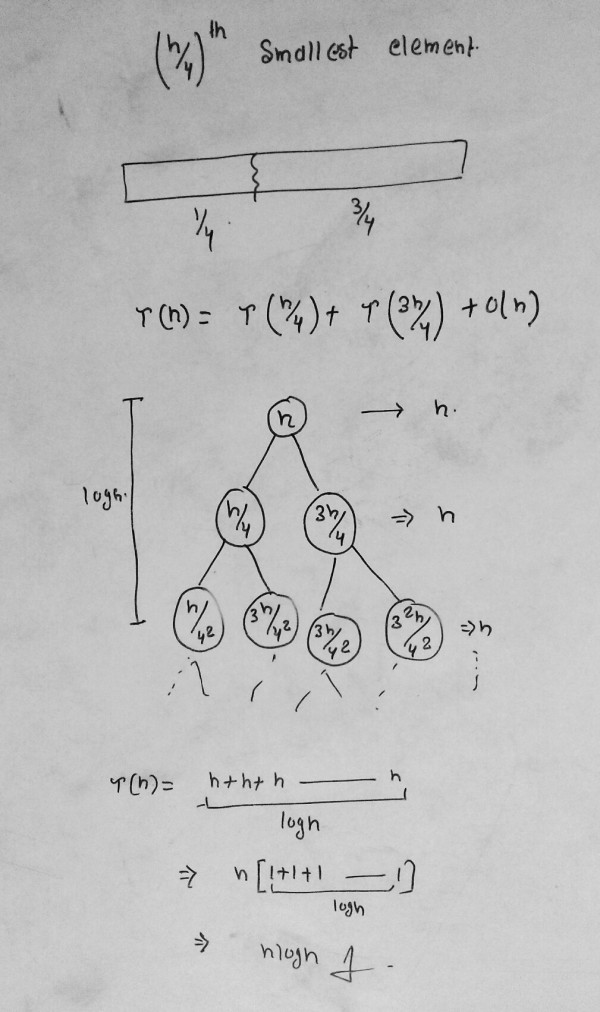 (n/4)th Smallest element.
1/4 3/4
T(n) = T(n/4) + T(3n/4) + O(n)
n → n.
logn. n/4 3n/4 ⇒ n
n/4² 3n/4² 3n/4² 3²n/4² ⇒ n
T(n) = n+n+n —— n
logn
⇒ n[1+1+1 — 1]
logn
⇒ nlogn